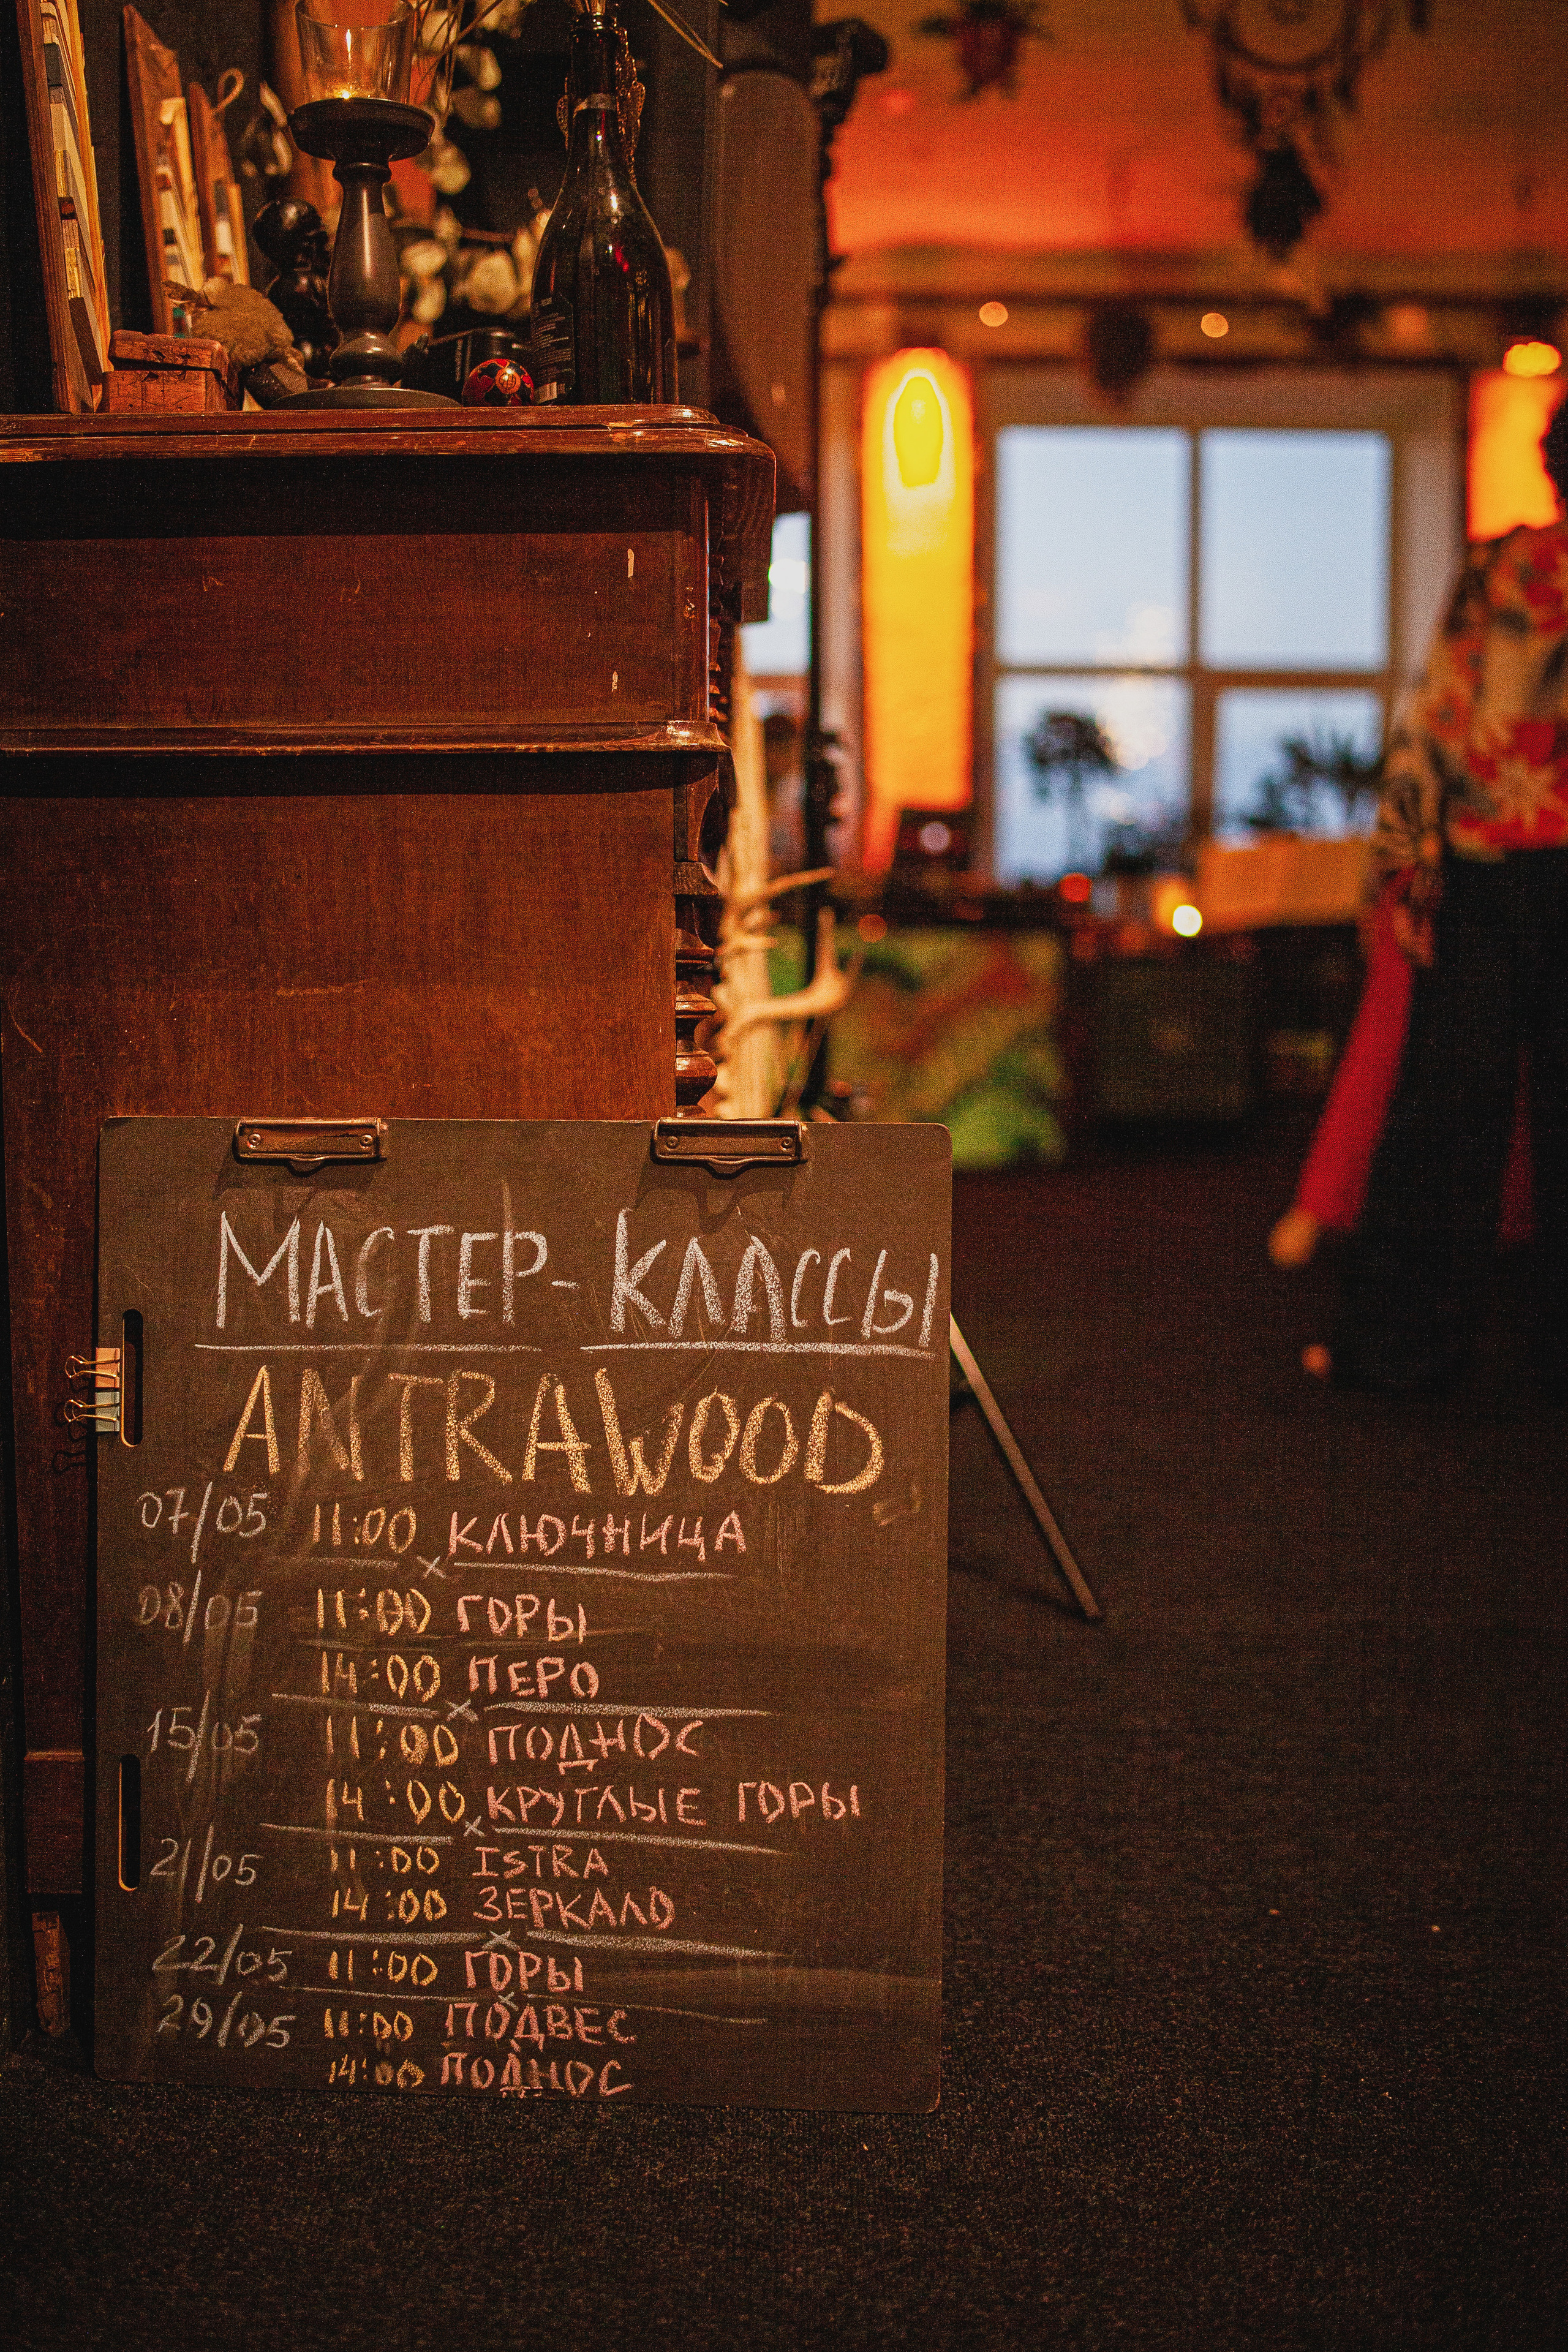 МАСТЕР-КЛАССЫ
ANTRAWOOD
07/05 11:00 КЛЮЧНИЦА
08/05 11:00 ГОРЫ
14:00 ПЕРО
15/05 11:00 ПОДНОС
14:00 КРУГЛЫЕ ГОРЫ
21/05 11:00 ISTRA
14:00 ЗЕРКАЛО
22/05 11:00 ГОРЫ
29/05 11:00 ПОДВЕС
14:00 ПОДНОС